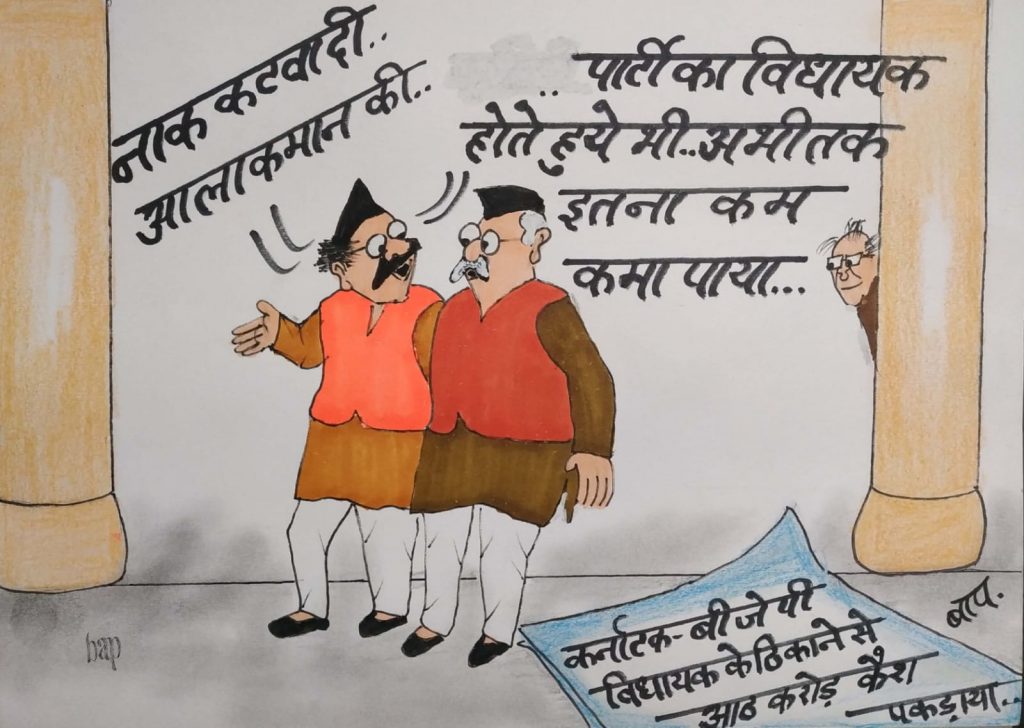 नाक कटवादी..
आलाकमान की..
.. पार्टी का विधायक
होते हुये भी..अभीतक
इतना कम
कमा पाया...
कर्नाटक-बीजेपी
विधायक के ठिकाने से
आठ करोड़ कैश
पकडाया..
बाप.
bap